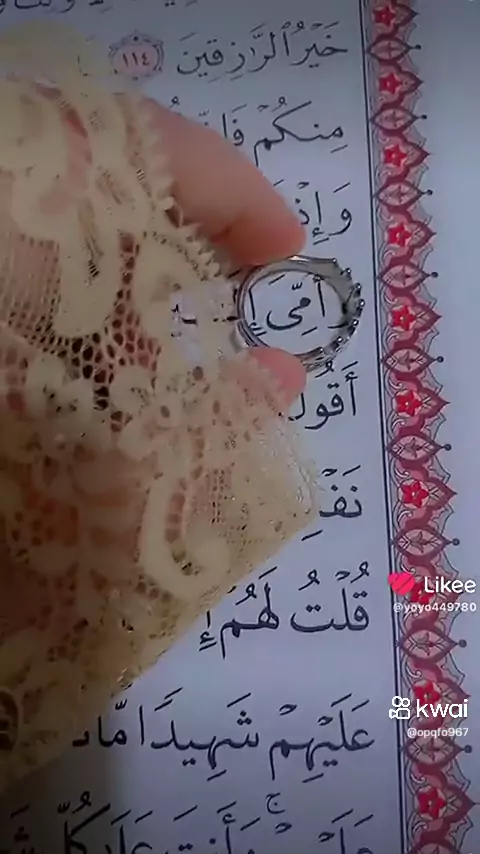 خَيْرُ ٱلرَّٰزِقِينَ ١١٤
مِنكُمْ
وَإِ
أُمِّىَ إِ
أَقُولَ
نَفْ
قُلْتُ لَهُمْ إِ
عَلَيْهِمْ شَهِيدًا مَّا
وَأَنتَ عَلَىٰ كُلِّ
Likee
@yoyo449780
kwai
@opqfo967